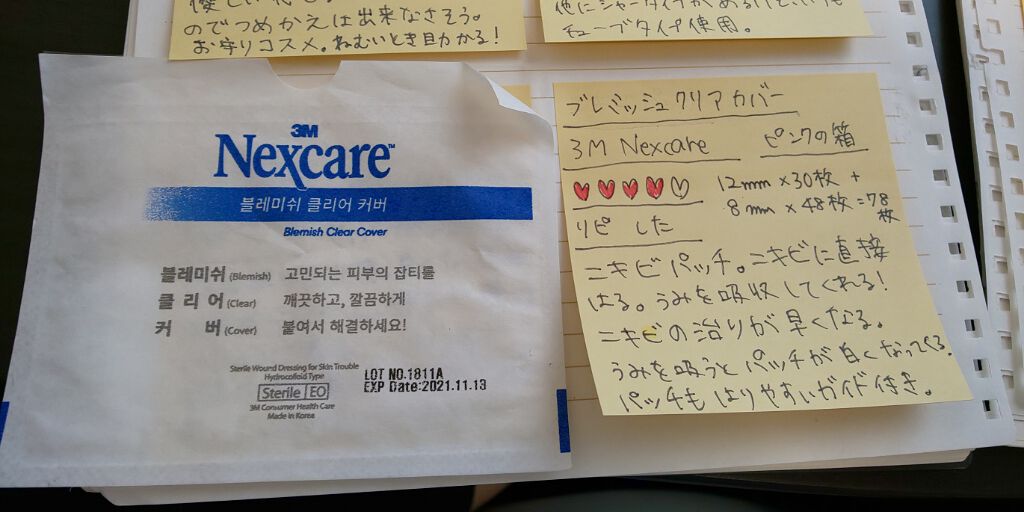 のでつめかえは出来なさそう。
お守りコスメ。ねむいとき助かる!
チューブタイプ使用。
3M
Nexcare™
블레미쉬 클리어 커버
Blemish Clear Cover
블레미쉬 (Blemish) 고민되는 피부의 잡티를
클 리 어 (Clear) 깨끗하고, 깔끔하게
커 버 (Cover) 붙여서 해결하세요!
Sterile Wound Dressing for Skin Trouble
Hydrocolloid Type
Sterile EO
3M Consumer Health Care
Made in Korea
LOT NO.1811A
EXP Date:2021.11.13
ブレミッシュクリアカバー
3M Nexcare ピンクの箱
12mm×30枚 +
8mm×48枚=78枚
リピした
ニキビパッチ。ニキビに直接
はる。うみを吸収してくれる!
ニキビの治りが早くなる。
うみを吸うとパッチが白くなってくる。
パッチもはりやすいガイド付き。